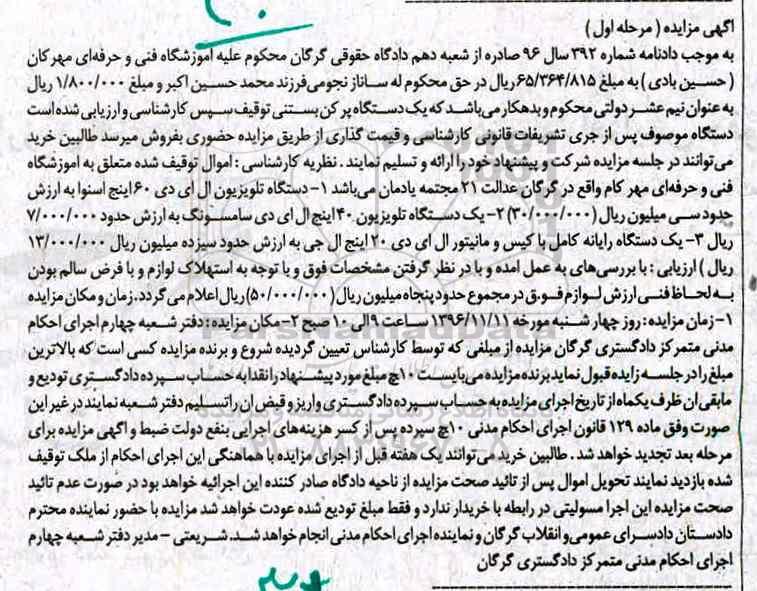 آگهی مزایده ( مرحله اول )
به موجب دادنامه شماره ۳۹۲ سال ۹۶ صادره از شعبه دهم دادگاه حقوقی گرگان محکوم علیه آموزشگاه فنی و حرفه‌ای مهرکان
( حسین بادی ) به مبلغ ۶۵/۳۶۴/۸۱۵ ریال در حق محکوم له ساناز نجومی فرزند محمد حسین اکبر و مبلغ ۱/۸۰۰/۰۰۰ ریال
به عنوان نیم عشر دولتی محکوم و بدهکار می‌باشد که یک دستگاه پر کن بستنی توقیف سپس کارشناسی و ارزیابی شده است
دستگاه موصوف پس از جری تشریفات قانونی کارشناسی و قیمت گذاری از طریق مزایده حضوری بفروش میرسد طالبین خرید
می‌توانند در جلسه مزایده شرکت و پیشنهاد خود را ارائه و تسلیم نمایند . نظریه کارشناسی : اموال توقیف شده متعلق به آموزشگاه
فنی و حرفه‌ای مهر کام واقع در گرگان عدالت ۲۱ مجتمه یادمان می‌باشد ۱- دستگاه تلویزیون ال ای دی ۶۰ اینچ اسنوا به ارزش
حدود سی میلیون ریال (۳۰/۰۰۰/۰۰۰) ۲- یک دستگاه تلویزیون ۴۰ اینچ ال ای دی سامسونگ به ارزش حدود ۷/۰۰۰/۰۰۰
ریال ۳- یک دستگاه رایانه کامل با کیس و مانیتور ال ای دی ۲۰ اینچ ال جی به ارزش حدود سیزده میلیون ریال ۱۳/۰۰۰/۰۰۰
ریال ) ارزیابی : با بررسی‌های به عمل آمده و با در نظر گرفتن مشخصات فوق و با توجه به استهلاک لوازم و با فرض سالم بودن
به لحاظ فنی ارزش لوازم فوق در مجموع حدود پنجاه میلیون ریال (۵۰/۰۰۰/۰۰۰) ریال اعلام می گردد. زمان و مکان مزایده
۱- زمان مزایده : روز چهارشنبه مورخه ۱۳۹۶/۱۱/۱۱ ساعت ۹ الی ۱۰ صبح ۲- مکان مزایده : دفتر شعبه چهارم اجرای احکام
مدنی متمرکز دادگستری گرگان مزایده از مبلغی که توسط کارشناس تعیین گردیده شروع و برنده مزایده کسی است که بالاترین
مبلغ را در جلسه زایده قبول نماید برنده مزایده می‌بایست ۱۰چ مبلغ مورد پیشنهاد را نقدا به حساب سپرده دادگستری تودیع و
مابقی ان ظرف یکماه از تاریخ اجرای مزایده به حساب سپرده دادگستری واریز و قبض ان را تسلیم دفتر شعبه نمایند در غیر این
صورت وفق ماده ۱۲۹ قانون اجرای احکام مدنی ۱۰چ سپرده پس از کسر هزینه‌های اجرایی بنفع دولت ضبط و آگهی مزایده برای
مرحله بعد تجدید خواهد شد . طالبین خرید می‌توانند یک هفته قبل از اجرای مزایده با هماهنگی این اجرای احکام از ملک توقیف
شده بازدید نمایند تحویل اموال پس از تائید صحت مزایده از ناحیه دادگاه صادر کننده این اجرائیه خواهد بود در صورت عدم تائید
صحت مزایده این اجرا مسولیتی در رابطه با خریدار ندارد و فقط مبلغ تودیع شده عودت خواهد شد مزایده با حضور نماینده محترم
دادستان دادسرای عمومی و انقلاب گرگان و نماینده اجرای احکام مدنی انجام خواهد شد. شریعتی - مدیر دفتر شعبه چهارم
اجرای احکام مدنی متمرکز دادگستری گرگان
ParsNamadData